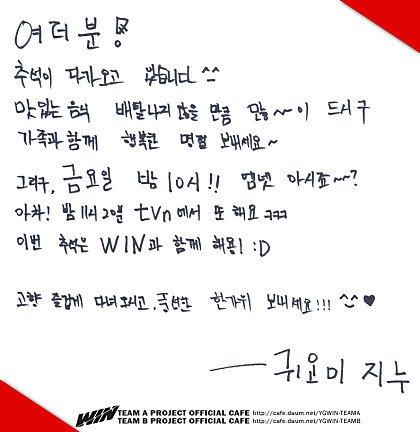 여러분
추석이 다가오고 있습니다 ^^
맛있는 음식 배탈나지 않을 만큼 많~~이 드시구
가족과 함께 행복한 명절 보내세요~
그리구, 금요일 밤 10시!! 엠넷 아시죠~~?
아차! 밤 11시 20분 tvn에서 또 해요 ㅋㅋㅋ
이번 추석은 WIN과 함께 해용! :D
고향 즐겁게 다녀오시고, 풍성한 한가위 보내세요!!! ^^ ♥
— 귀요미 지누
WIN TEAM A PROJECT OFFICIAL CAFE http://cafe.daum.net/YGWIN-TEAMA
TEAM B PROJECT OFFICIAL CAFE http://cafe.daum.net/YGWIN-TEAMB